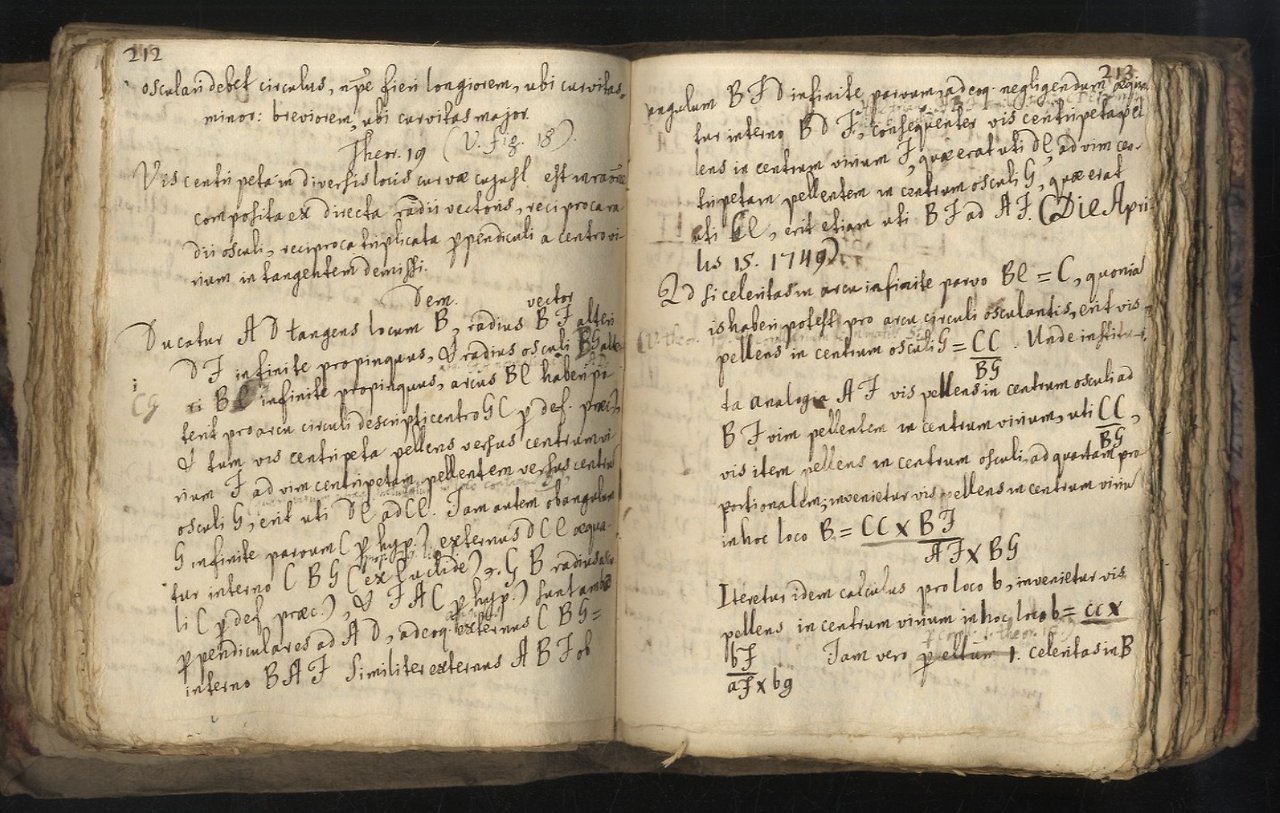 212
osculari debet circulus, npē fieri longiorem, ubi curvitas
minor: breviorem, ubi curvitas major.
Theor. 19 (V. fig. 18).
Vis centripeta in diversis locis curvæ cujusl est in raōne
composita ex directa radii vectoris, reciproca ra-
dii osculi, reciproca triplicata ppendiculi a centro vi-
rium in tangentem demissi.
Dem. vector
Ducatur AD tangens locum B, radius BF alteri
DF infinite propinquus, & radius osculi BG alte-
ri infinite propinquus, arcus Bl haberi po-
CG
terit pro arcu circuli descripti centro GC p def. præc.,
& tum vis centripeta pellens versus centrum vi-
rium F ad vim centripetam pellentem versus centrum
osculi G, erit uti Dl ad Cl. Jam autem ob angulum
G infinite parvum (p hyp.) externus DCl æqua-
tur interno CBG (ex Euclide) GB radius
li (p def. præc.), & FA (p hyp.) sunt ambæ
ppendiculares ad AD, adeoq. externus CBG =
interno BAF Similiter externus ABF ob
213
angulum BFD infinite parvum, adeoq. negligendum æqua-
tur interno BDF, consequenter vis centripeta pel-
lens in centrum virium F, quæ erat uti Dl, ad vim cen-
tripetam pellentem in centrum osculi G, quæ erat
uti Cl, erit etiam uti BF ad AF. (Die Apri-
lis 15. 1749)
Qd si celeritas in arcu infinite parvo Bl = C, quonia
is haberi potest pro arcu circuli osculantis, erit vis
pellens in centrum osculi G = CC/BG. Unde institu-
ta analogia AF vis pellens in centrum osculi ad
BF vim pellentem in centrum virium, uti CC/BG,
vis item pellens in centrum osculi, ad quartam pro-
portionalem; invenietur vis pellens in centrum viriū
in hoc loco B = CC x BF
AF x BG
Iteretur idem calculus pro loco b, invenietur vis
pellens in centrum virium in hoc loco b = cc x
bF Jam vero celeritas in B
aF x bg